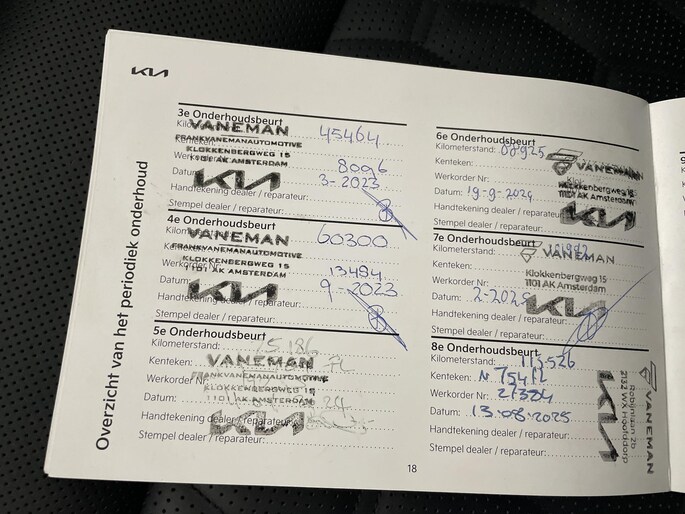 KIA
Overzicht van het periodiek onderhoud
3e Onderhoudsbeurt
VANEMAN
45464
FRANKVANEMANAUTOMOTIVE
KLOKKENBERGWEG 15
Werkorder 8096
1101 AK AMSTERDAM
Datum: 3-2023
KIA
Handtekening dealer / reparateur:
Stempel dealer / reparateur:
4e Onderhoudsbeurt
VANEMAN
60300
FRANKVANEMANAUTOMOTIVE
KLOKKENBERGWEG 15
Werkorder Nr. 13484
1101 AK AMSTERDAM
Datum: 9-2023
KIA
Handtekening dealer / reparateur:
Stempel dealer / reparateur:
5e Onderhoudsbeurt
Kilometerstand: 75.186
Kenteken:
VANEMAN
FRANKVANEMANAUTOMOTIVE
Werkorder Nr
KLOKKENBERGWEG 15
Datum:
1101 AK AMSTERDAM
KIA
Handtekening dealer / reparateur:
Stempel dealer / reparateur:
6e Onderhoudsbeurt
Kilometerstand:
VANEMAN
Kenteken:
Werkorder Nr:
Klokkenbergweg 15
Datum: 19-9-2024
1101 AK Amsterdam
KIA
Handtekening dealer / reparateur:
Stempel dealer / reparateur:
7e Onderhoudsbeurt
Kilometerstand:
VANEMAN
Kenteken:
Klokkenbergweg 15
Werkorder Nr:
1101 AK Amsterdam
Datum: 2-2025
KIA
Handtekening dealer / reparateur:
Stempel dealer / reparateur:
8e Onderhoudsbeurt
Kilometerstand: 113526
Kenteken: N 754 FL
Werkorder Nr: 27324
Datum: 13.08.2025
Handtekening dealer / reparateur:
Stempel dealer / reparateur:
KIA
VANEMAN
Robijnlaan 2b
2132 WX Hoofddorp
18